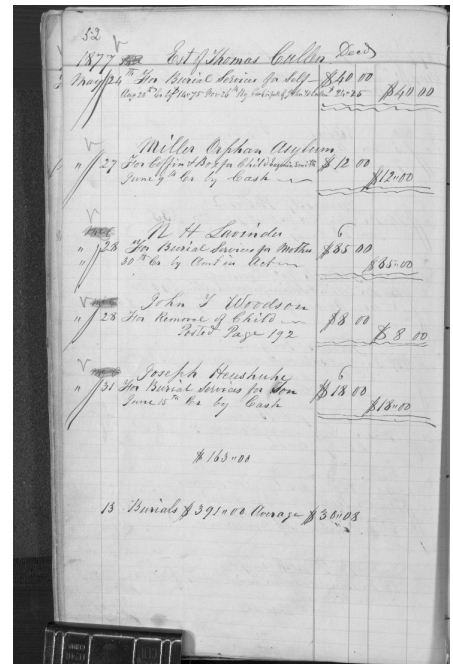 52
1877 Est of Thomas Cullen Decd
May 24th For Burial Services for Self $40 00
$40 00
Miller Orphan Asylum
" 27 For Coffin & Box for Child Smith $12 00
June 9th Cr by Cash $12"00
N H Lavinder 6
" 28 For Burial Services for Mother $85 00
" 30th Cr by Amt in Act $85"00
John T Woodson
" 28 For Removal of Child $8 00
Posted Page 192 $8 00
Joseph 6
" 31 For Burial Services for Son $18 00
June 15th Cr by Cash $18"00
$163"00
13 Burials $391"00 Average $30"08